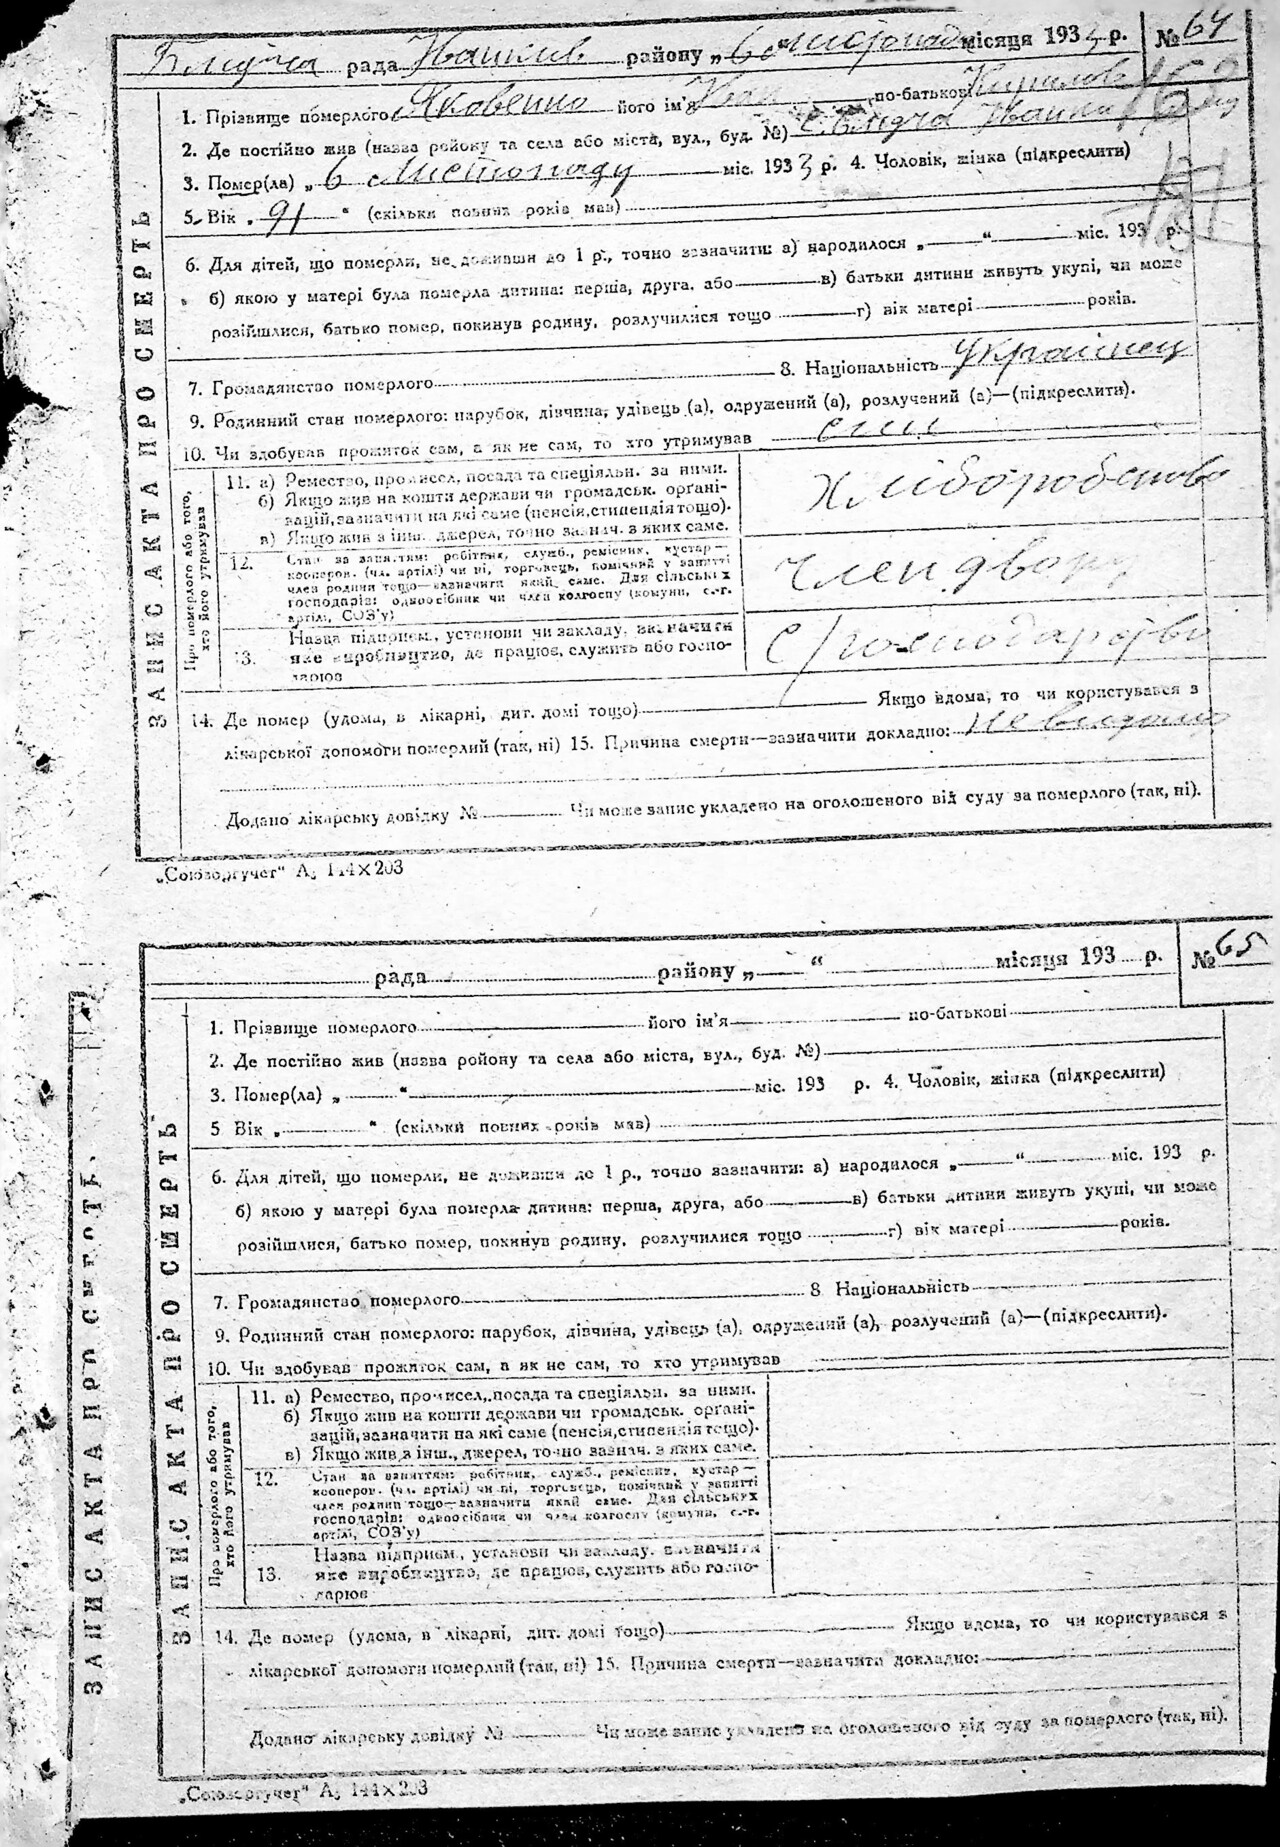 Блидча рада Іванків району „ 6 " листопада місяця 1933 р. № 64
1. Прізвище померлого Яковенко його ім'я Іван по-батькові
2. Де постійно жив (назва району та села або міста, вул., буд. №) с. Блидча Іванків
3. Помер(ла) „ 6 Листопаду міс. 1933 р. 4. Чоловік, жінка (підкреслити)
5. Вік „ 91 " (скільки повних років мав)
6. Для дітей, що померли, не доживши до 1 р., точно зазначити: а) народилося „ " міс. 193 р.
б) якою у матері була померла дитина: перша, друга, або в) батьки дитини живуть укупі, чи може
розійшлися, батько помер, покинув родину, розлучилися тощо г) вік матері років.
7. Громадянство померлого 8. Національність Українец
9. Родинний стан померлого: парубок, дівчина, удівець (а), одружений (а), розлучений (а)—(підкреслити).
10. Чи здобував прожиток сам, а як не сам, то хто утримував
ЗАПИС АКТА ПРО СМЕРТЬ
Про померлого або того, хто його утримував
11. а) Ремество, промисел, посада та спеціяльн. за ними.
б) Якщо жив на кошти держави чи громадськ. орґані-
зацій, зазначити на які саме (пенсія, стипендія тощо).
в) Якщо жив з інш. джерел, точно зазнач. з яких саме.
Хліборобство
12. Стан за заняттям: робітник, служб., ремісник, кустар—
кооперов. (чл. артілі) чи ні, торговець, помічний у занятті
член родини тощо—зазначити який саме. Для сільських
господарів: одноосібник чи член колгоспу (комуни, с.-г.
артілі, СОЗ'у)
член двору
13. Назва підприєм., установи чи закладу, зазначити
яке виробництво, де працює, служить або госпо-
дарює
С/господарство
14. Де помер (удома, в лікарні, дит. домі тощо) Якщо вдома, то чи користувався з
лікарської допомоги померлий (так, ні) 15. Причина смерти—зазначити докладно: невидомо
Додано лікарську довідку № Чи може запис укладено на оголошеного від суду за померлого (так, ні).
„Союзоргучет" А₅ 144×203
рада району „ " місяця 193 р. № 65
1. Прізвище померлого його ім'я по-батькові
2. Де постійно жив (назва району та села або міста, вул., буд. №)
3. Помер(ла) „ " міс. 193 р. 4. Чоловік, жінка (підкреслити)
5 Вік „ " (скільки повних років мав)
6. Для дітей, що померли, не доживши до 1 р., точно зазначити: а) народилося „ " міс. 193 р.
б) якою у матері була померла дитина: перша, друга, або в) батьки дитини живуть укупі, чи може
розійшлися, батько помер, покинув родину, розлучилися тощо г) вік матері років.
7. Громадянство померлого 8 Національність
9. Родинний стан померлого: парубок, дівчина, удівець (а), одружений (а), розлучений (а)—(підкреслити).
10. Чи здобував прожиток сам, а як не сам, то хто утримував
ЗАПИС АКТА ПРО СМЕРТЬ
ЗАПИС АКТА ПРО СМЕРТЬ
Про померлого або того, хто його утримував
11. а) Ремество, промисел, посада та спеціяльн. за ними.
б) Якщо жив на кошти держави чи громадськ. орґані-
зацій, зазначити на які саме (пенсія, стипендія тощо).
в) Якщо жив з інш., джерел, точно зазнач. з яких саме.
12. Стан за заняттям: робітник, служб., ремісник, кустар—
кооперов. (чл. артілі) чи ні, торговець, помічний у занятті
член родини тощо—зазначити який саме. Для сільських
господарів: одноосібник чи член колгоспу (комуни, с.-г.
артілі, СОЗ'у)
13. Назва підприєм., установи чи закладу. зазначити
яке виробництво, де працює, служить або госпо-
дарює
14. Де помер (удома, в лікарні, дит. домі тощо) Якщо вдома, то чи користувався з
лікарської допомоги померлий (так, ні) 15. Причина смерти—зазначити докладно:
Додано лікарську довідку № Чи може запис укладено на оголошеного від суду за померлого (так, ні).
„Союзоргучет" А₅ 144×203